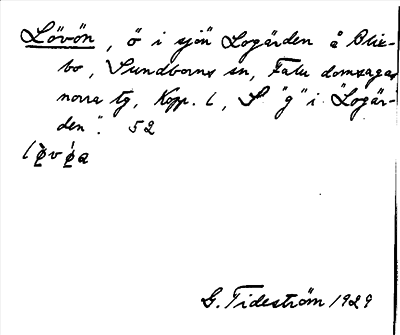 Lövön, ö i sjön Logärden å Blix-
bo, Sundborns sn, Falu domsagas
norra tg, Kopp. l, S "g" i "Logär-
den". 52
G. Tideström 1929